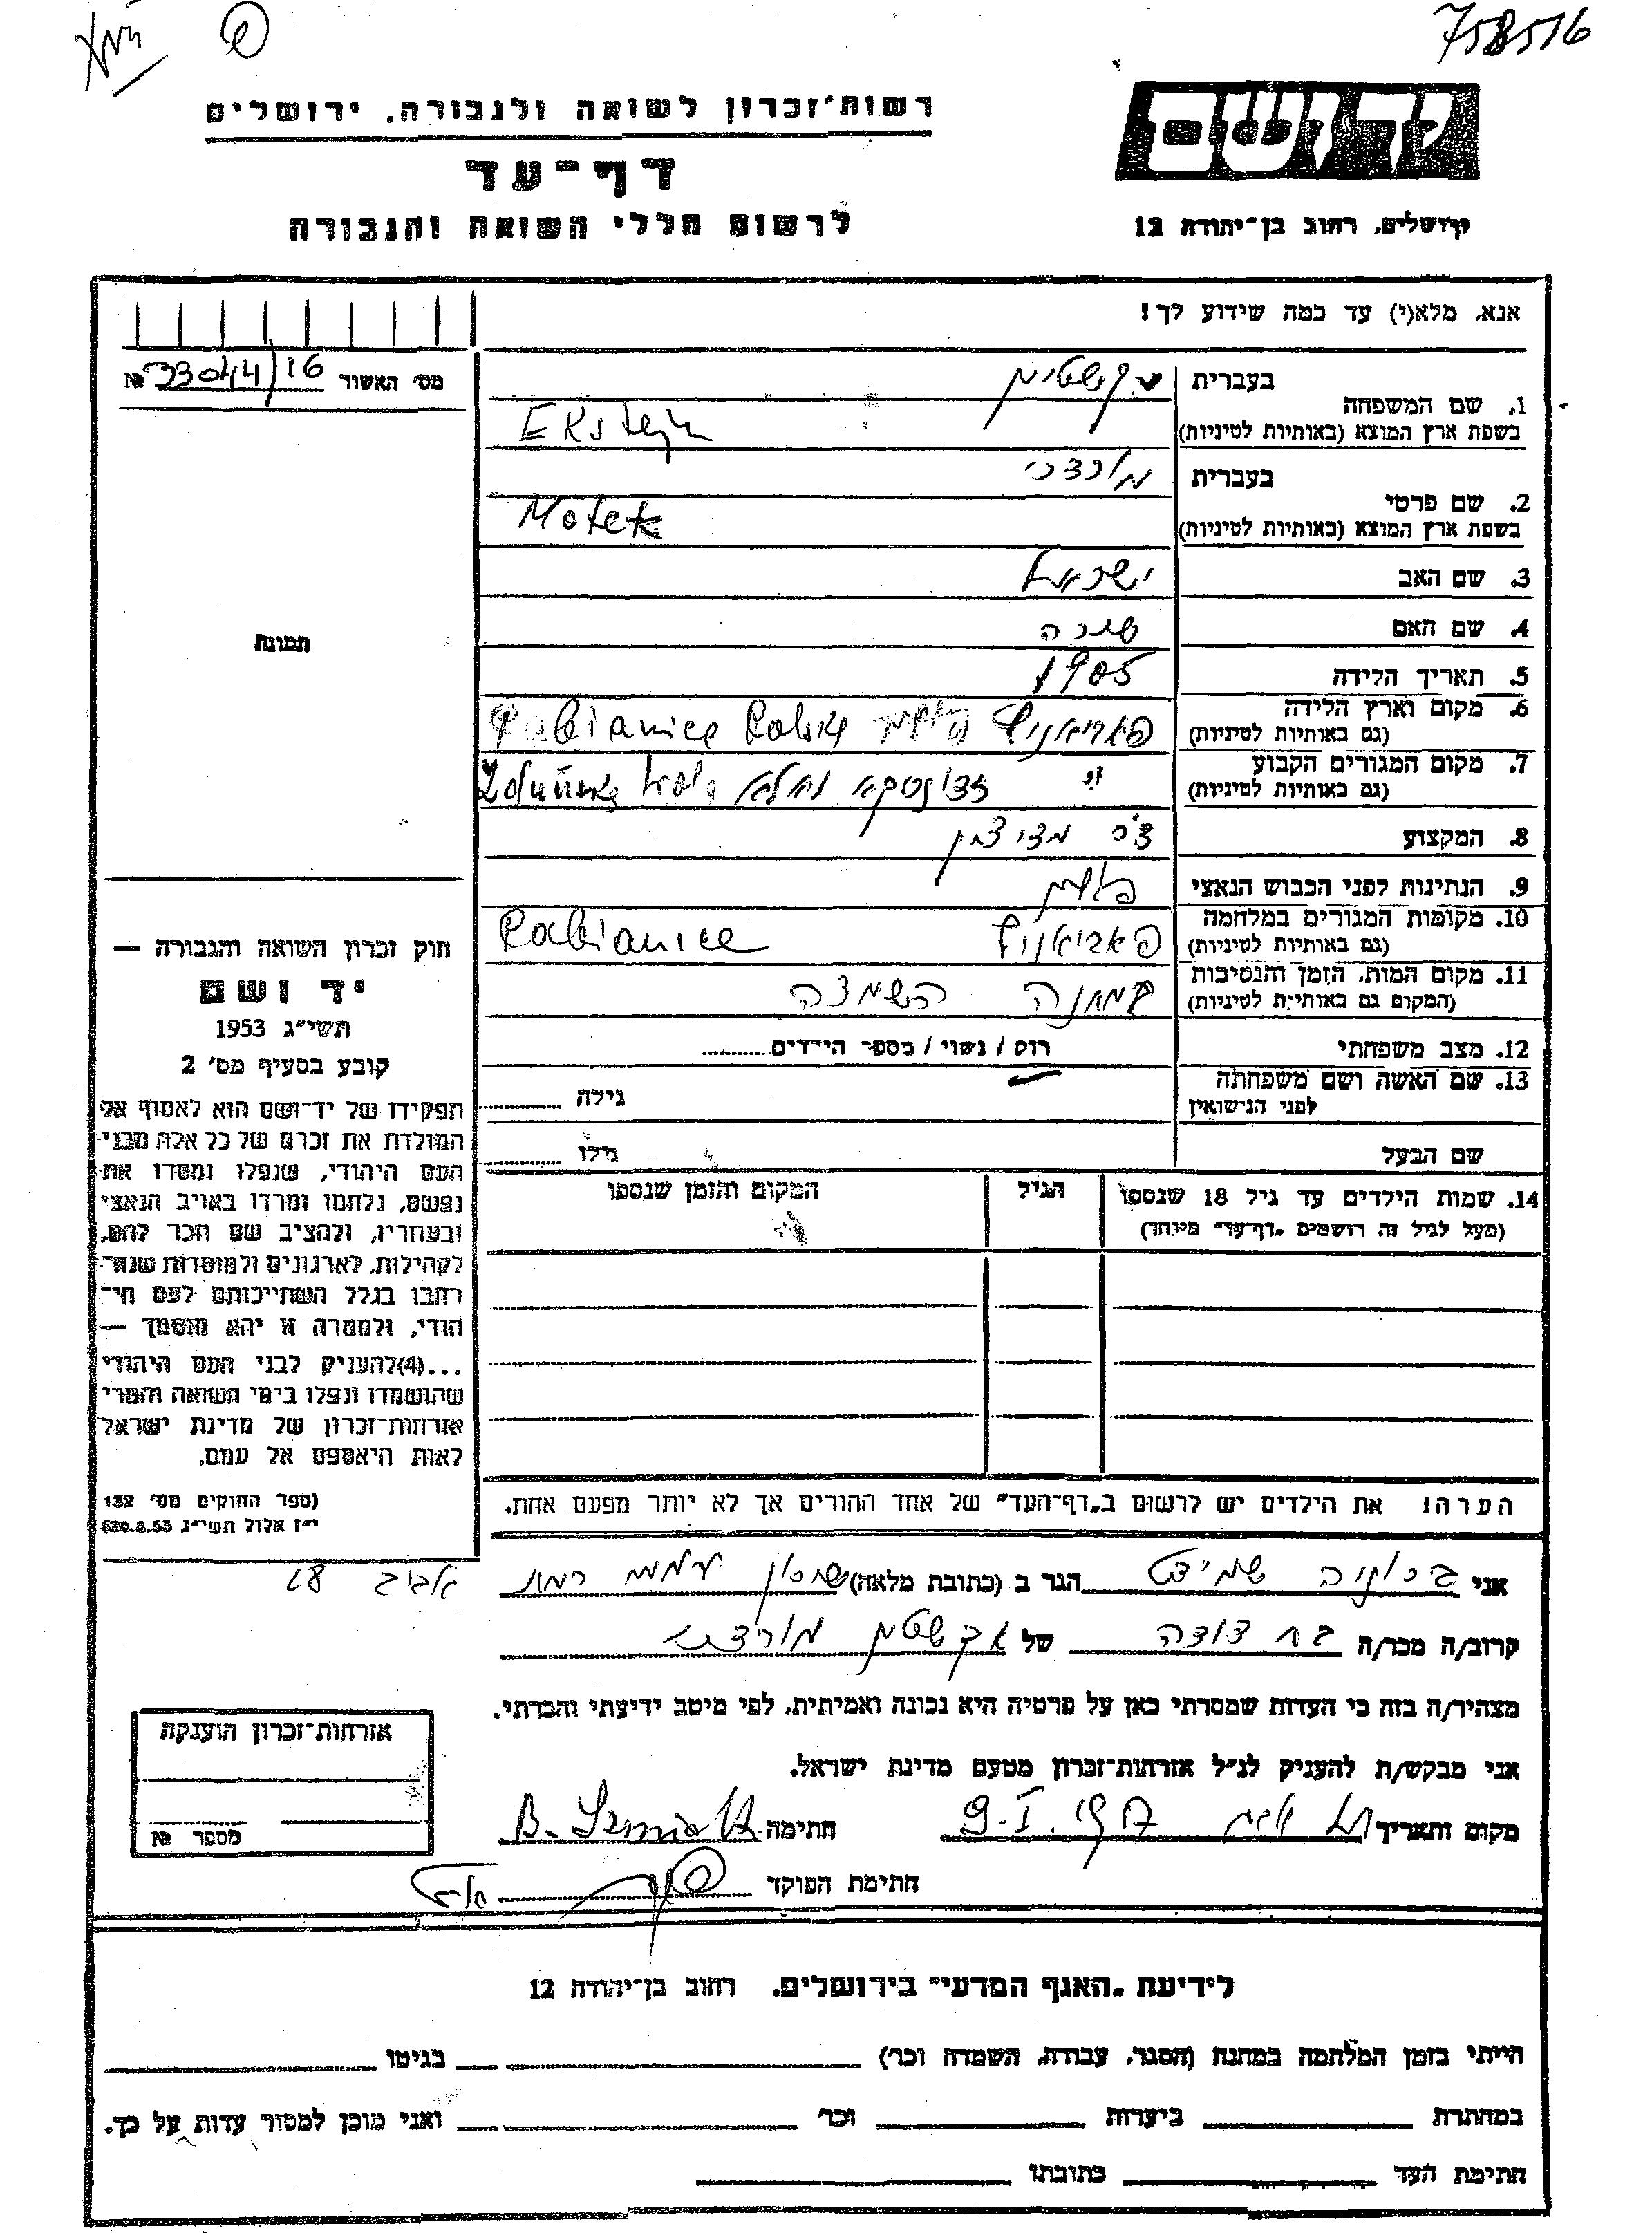 758516
רשות־זכרון לשואה ולגבורה, ירושלים
דף־עד
לרשום חללי השואה והגבורה
ירושלים, רחוב בן־יהודה 12
אנא, מלא(י) עד כמה שידוע לך!
מס׳ האשור № 33044/16
1. שם המשפחה
בעברית
בשפת ארץ המוצא (באותיות לטיניות) Ekstejn
2. שם פרטי
בעברית מורדכי
בשפת ארץ המוצא (באותיות לטיניות) Motek
3. שם האב ישראל
4. שם האם שרה
5. תאריך הלידה 1905
6. מקום וארץ הלידה
(גם באותיות לטיניות) פאביאניץ פולין Pabianice Polska
7. מקום המגורים הקבוע
(גם באותיות לטיניות) זדונסקא וולא Zduńska Wola
8. המקצוע
9. הנתינות לפני הכבוש הנאצי פולין
10. מקומות המגורים במלחמה
(גם באותיות לטיניות) פאביאניץ Pabianice
11. מקום המות, הזמן והנסיבות
(המקום גם באותיות לטיניות) במחנה השמדה
12. מצב משפחתי רווק / נשוי / מספר הילדים
13. שם האשה ושם משפחתה
לפני הנישואין גילה
שם הבעל גילו
14. שמות הילדים עד גיל 18 שנספו
(מעל לגיל זה רושמים „דף־עד״ מיוחד)
הגיל
המקום והזמן שנספו
הערה! את הילדים יש לרשום ב„דף־העד״ של אחד ההורים אך לא יותר מפעם אחת.
תמונה
חוק זכרון השואה והגבורה —
יד ושם
תשי״ג 1953
קובע בסעיף מס׳ 2
תפקידו של יד־ושם הוא לאסוף אל
המולדת את זכרם של כל אלה מבני
העם היהודי, שנפלו ומסרו את
נפשם, נלחמו ומרדו באויב הנאצי
ובעוזריו, ולהציב שם וזכר להם,
לקהילות, לארגונים ולמוסדות שנח־
רבו בגלל השתייכותם לעם הי־
הודי, ולמטרה זו יהא מוסמך —
...(4)להעניק לבני העם היהודי
שהושמדו ונפלו בימי השואה והמרי
אזרחות־זכרון של מדינת ישראל
לאות היאספם אל עמם.
(ספר החוקים מס׳ 132
י״ז אלול תשי״ג 28.8.53)
אני ברוניה שמידט הגר ב (כתובת מלאה) שכון עממי רמת אביב 18
קרוב/ה מכר/ה בת דודה של אקשטין מורדכי
מצהיר/ה בזה כי העדות שמסרתי כאן על פרטיה היא נכונה ואמיתית, לפי מיטב ידיעתי והכרתי.
אני מבקש/ת להעניק לנ״ל אזרחות־זכרון מטעם מדינת ישראל.
מקום ותאריך תל אביב 9.I.1957 חתימה
חתימת הפוקד
אזרחות־זכרון הוענקה
מספר №
לידיעת „האגף המדעי״ בירושלים, רחוב בן־יהודה 12
הייתי בזמן המלחמה במחנה (הסגר, עבודה, השמדה וכר) בגיטו
במחתרת ביערות וכר ואני מוכן למסור עדות על כך.
חתימת העד כתובתו